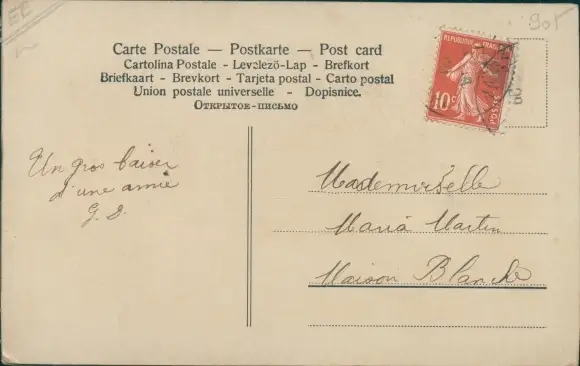 Carte Postale — Postkarte — Post card
Cartolina Postale - Levelező-Lap - Brefkort
Briefkaart - Brevkort - Tarjeta postal - Carto postal
Union postale universelle - Dopisnice.
Открытое-письмо
REPUBLIQUE FRANÇAISE
10c
POSTES
Un gros baiser
d'une amie
G. S.
Mademoiselle
Maria Martin
Maison Blanche